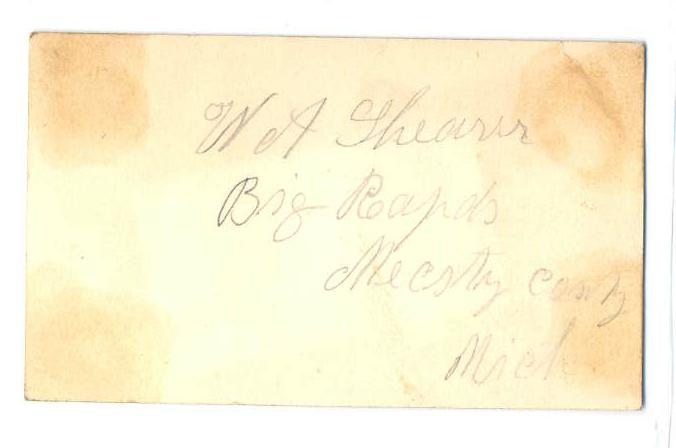 W A Shearer
Big Rapids
Mecsty conty
Mich